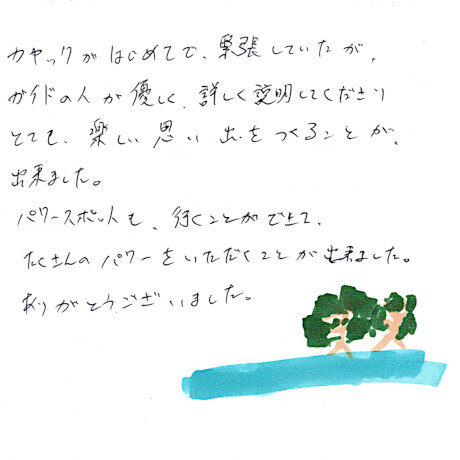 カヤックがはじめてで、緊張していたが、
ガイドの人が優しく、詳しく説明してくださり
とても、楽しい思い出をつくることが、
出来ました。
パワースポットも、行くことができて、
たくさんのパワーをいただくことが出来ました。
ありがとうございました。